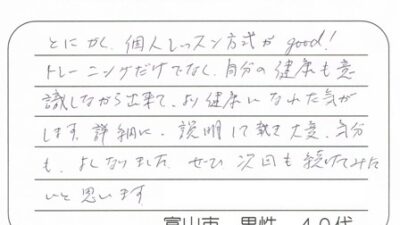 とにかく、個人レッスン方式が good!
トレーニングだけでなく、自分の健康も意
識しながら出来て、より健康になれた気が
します。詳細に、説明して戴き大変、気分
も、よくなりました。ぜひ次回も続けてみた
いと思います
富山市 男性 40代